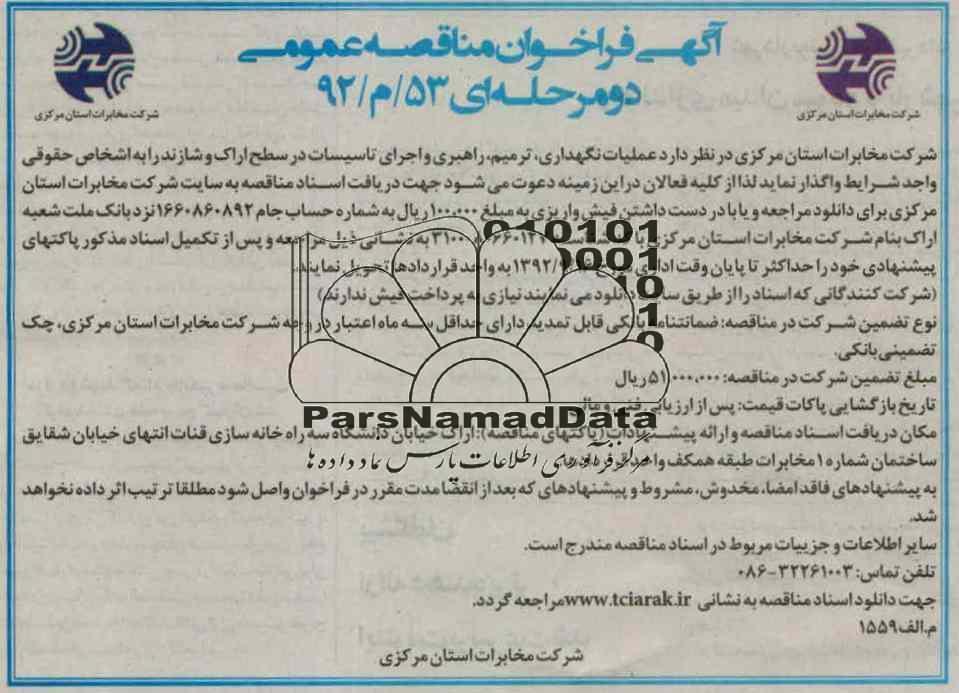 آگهی فراخوان مناقصه عمومی
دو مرحله‌ای ۵۳/م/۹۲
شرکت مخابرات استان مرکزی
شرکت مخابرات استان مرکزی
شرکت مخابرات استان مرکزی در نظر دارد عملیات نگهداری، ترمیم، راهبری و اجرای تاسیسات در سطح اراک و شازند را به اشخاص حقوقی
واجد شرایط واگذار نماید لذا از کلیه فعالان در این زمینه دعوت می شود جهت دریافت اسناد مناقصه به سایت شرکت مخابرات استان
مرکزی برای دانلود مراجعه و یا با در دست داشتن فیش واریزی به مبلغ ۱۰۰،۰۰۰ ریال به شماره حساب جام ۱۶۶۰۸۶۰۸۹۲ نزد بانک ملت شعبه
اراک بنام شرکت مخابرات استان مرکزی با به نشانی ذیل مراجعه و پس از تکمیل اسناد مذکور پاکتهای
پیشنهادی خود را حداکثر تا پایان وقت اداری به واحد قراردادها تحویل نمایند.
(شرکت کنندگانی که اسناد را از طریق سایت دانلود می نمایند نیازی به پرداخت فیش ندارند)
نوع تضمین شرکت در مناقصه: ضمانتنامه بانکی قابل تمدید دارای حداقل سه ماه اعتبار در وجه شرکت مخابرات استان مرکزی، چک
تضمینی بانکی.
مبلغ تضمین شرکت در مناقصه: ۵۱،۰۰۰،۰۰۰ ریال
تاریخ بازگشایی پاکات قیمت: پس از ارزیابی فنی و
ParsNamadData
مکان دریافت اسناد مناقصه و ارائه پیشنهادات (پاکتهای مناقصه): اراک خیابان دانشگاه سه راه خانه سازی قنات انتهای خیابان شقایق
ساختمان شماره ۱ مخابرات طبقه همکف واحد قراردادها
مرکز فرآوری اطلاعات پارس نماد داده ها
به پیشنهادهای فاقد امضا، مخدوش، مشروط و پیشنهادهای که بعد از انقضا مدت مقرر در فراخوان واصل شود مطلقا ترتیب اثر داده نخواهد
شد.
سایر اطلاعات و جزییات مربوط در اسناد مناقصه مندرج است.
تلفن تماس: ۳۲۲۶۱۰۰۳-۰۸۶
جهت دانلود اسناد مناقصه به نشانی www.tciarak.ir مراجعه گردد.
م.الف ۱۵۵۹
شرکت مخابرات استان مرکزی